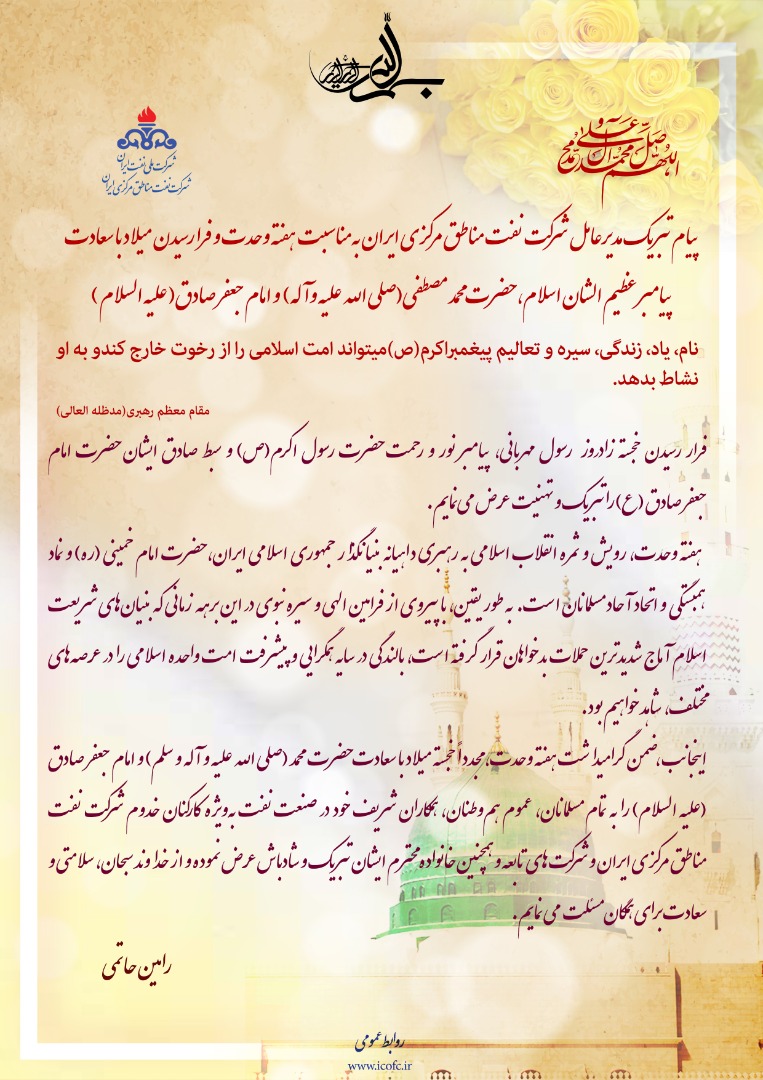 بسم الله الرحمن الرحیم
اللهم صل علی محمد و آل محمد
شرکت ملی نفت ایران
شرکت نفت مناطق مرکزی ایران
پیام تبریک مدیرعامل شرکت نفت مناطق مرکزی ایران به مناسبت هفته وحدت و فرارسیدن میلاد باسعادت
پیامبر عظیم الشان اسلام، حضرت محمد مصطفی (صلی الله علیه و آله) و امام جعفر صادق (علیه السلام)
نام، یاد، زندگی، سیره و تعالیم پیغمبراکرم(ص)میتواند امت اسلامی را از رخوت خارج کندو به او
نشاط بدهد.
مقام معظم رهبری(مدظله العالی)
فرار رسیدن خجسته زادروز رسول مهربانی، پیامبر نور و رحمت حضرت رسول اکرم(ص) و سبط صادق ایشان حضرت امام
جعفر صادق (ع) را تبریک و تهنیت عرض می‌نمایم.
هفته وحدت، رویش و ثمره انقلاب اسلامی به رهبری داهیانه بنیانگذار جمهوری اسلامی ایران، حضرت امام خمینی (ره) و نماد
همبستگی و اتحاد آحاد مسلمانان است. به طور یقین، با پیروی از فرامین الهی و سیره نبوی در این برهه زمانی که بنیان‌های شریعت
اسلام آماج شدیدترین حملات بدخواهان قرار گرفته است، بالندگی در سایه همگرایی و پیشرفت امت واحده اسلامی را در عرصه های
مختلف، شاهد خواهیم بود.
اینجانب، ضمن گرامیداشت هفته وحدت، مجدداً خجسته میلاد با سعادت حضرت محمد (صلی الله علیه و آله و سلم) و امام جعفر صادق
(علیه السلام) را به تمام مسلمانان، عموم هم وطنان، همکاران شریف خود در صنعت نفت به‌ویژه کارکنان خدوم شرکت نفت
مناطق مرکزی ایران و شرکت های تابعه و همچنین خانواده محترم ایشان تبریک و شادباش عرض نموده و از خداوند سبحان، سلامتی و
سعادت برای همگان مسئلت می نمایم.
رامین حاتمی
روابط عمومی
www.icofc.ir